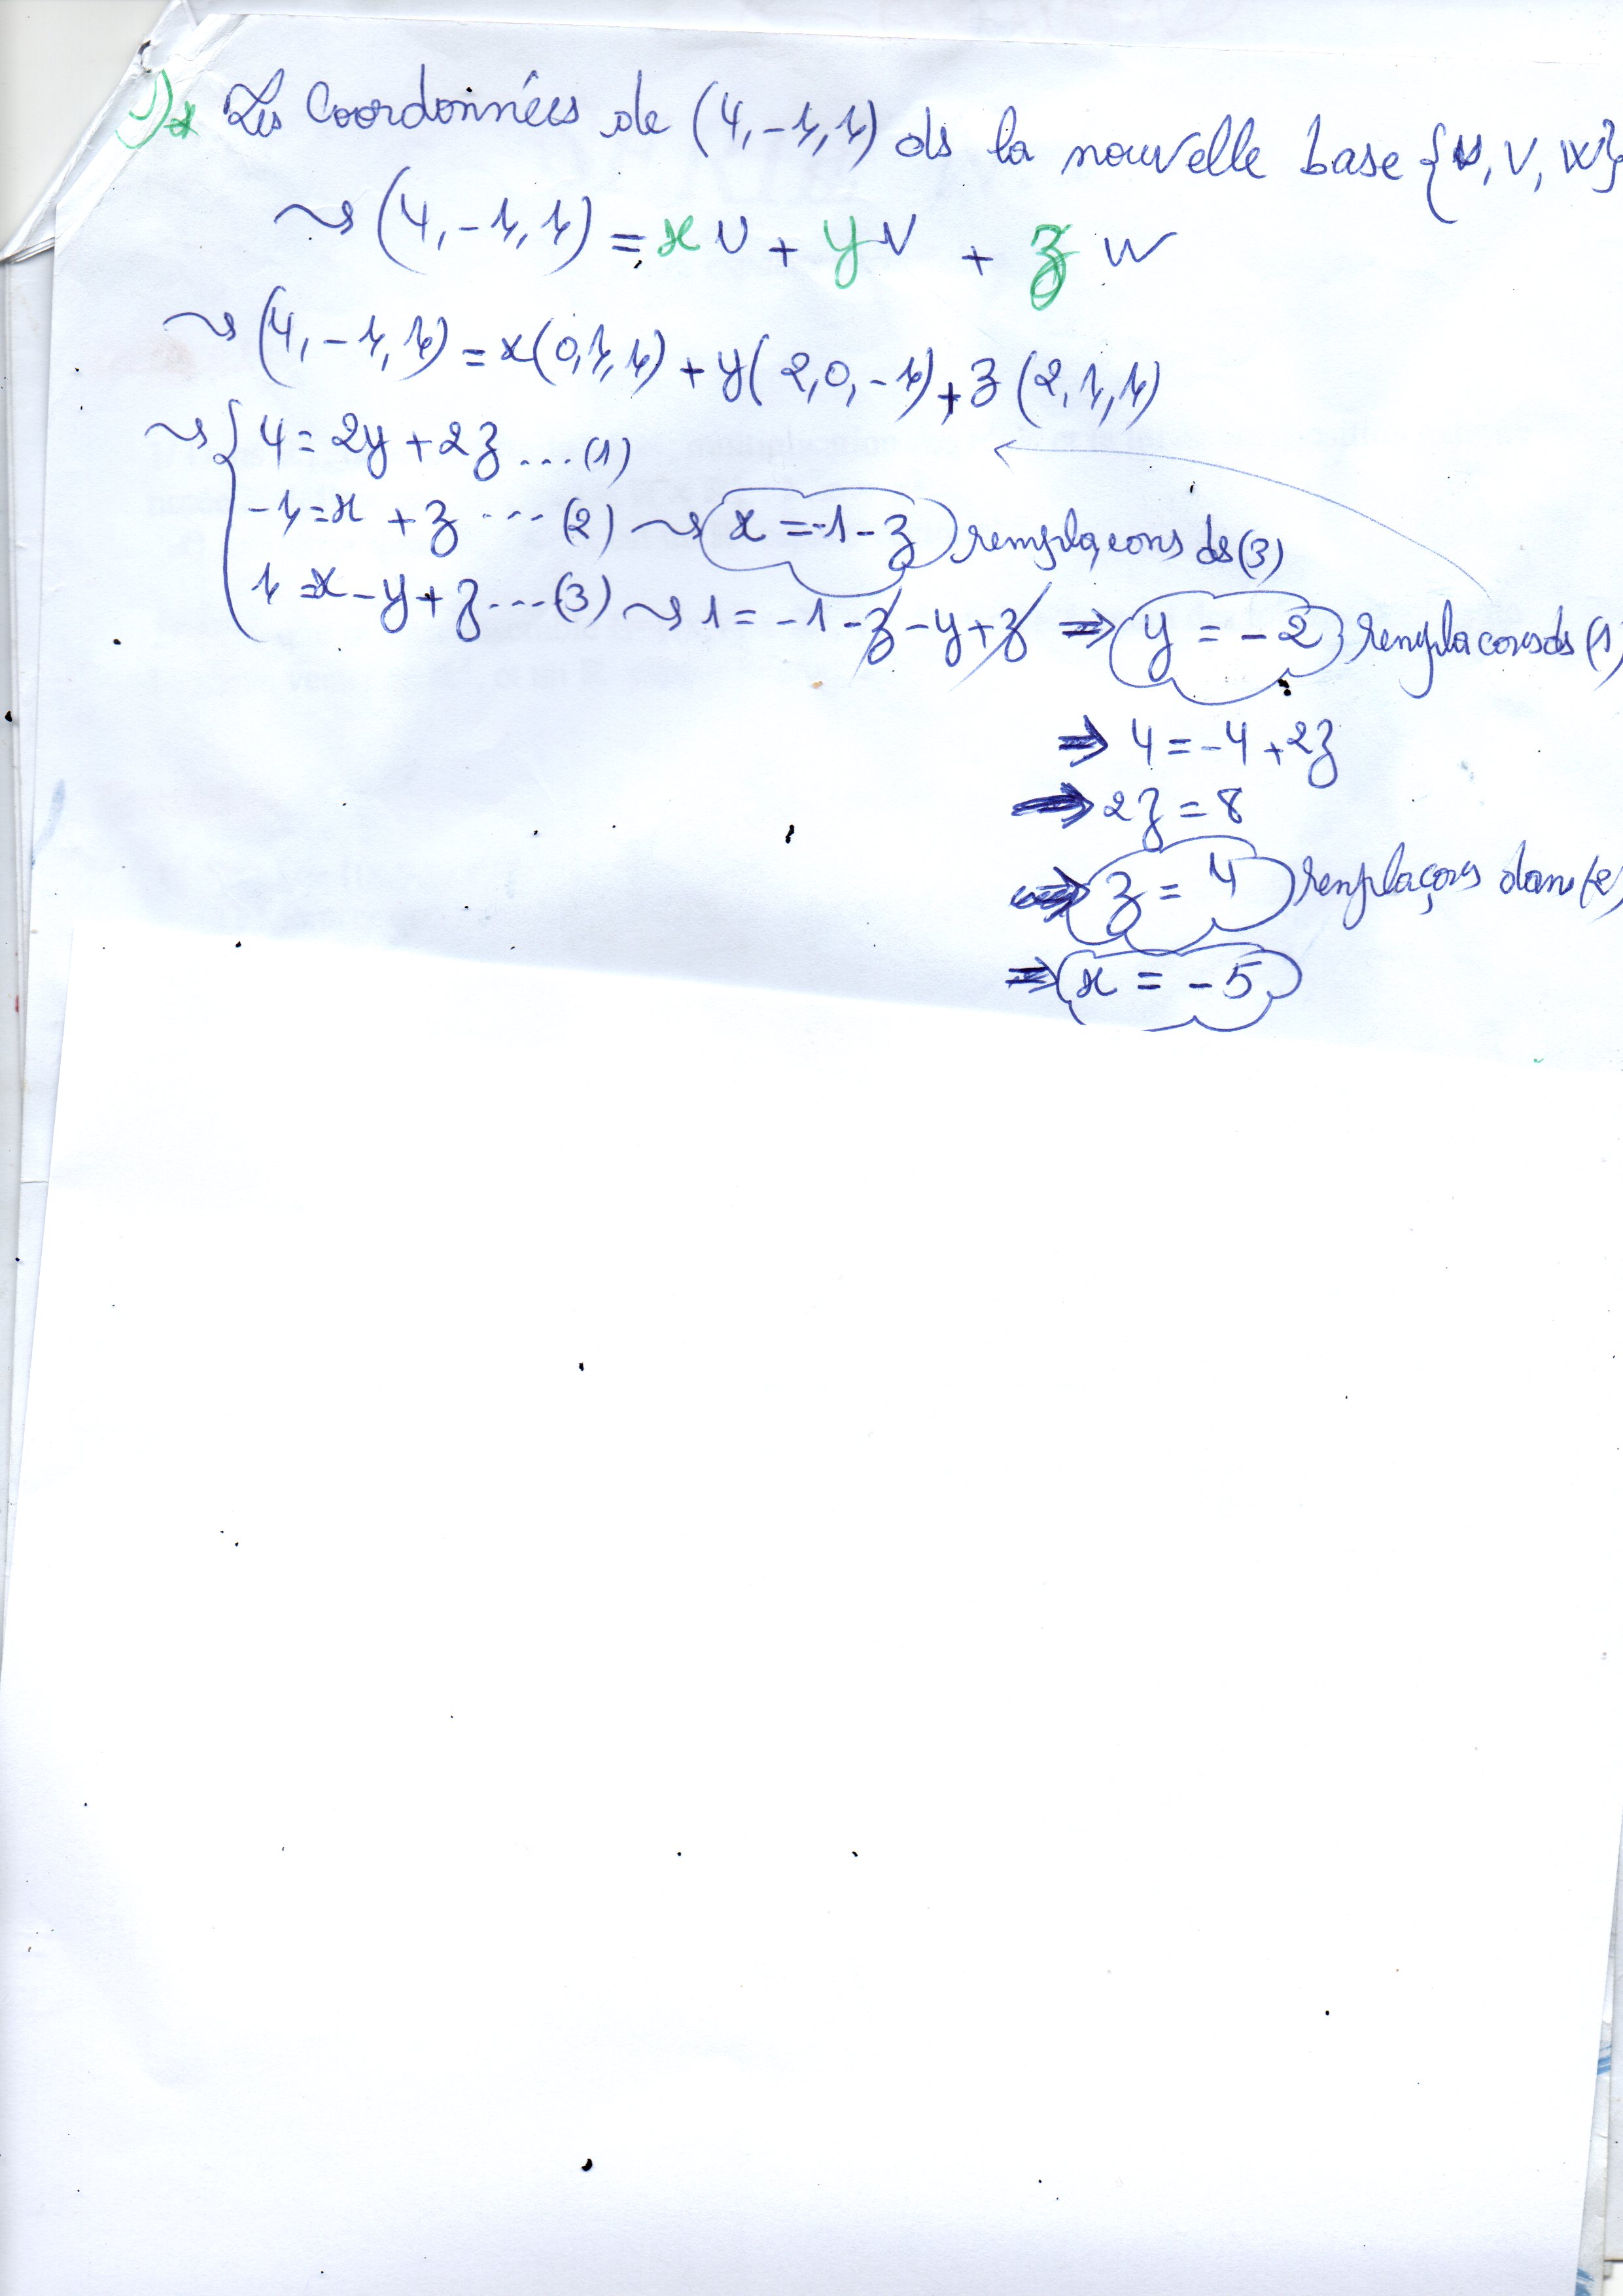 * Les Coordonnées de (4,-1,1) ds la nouvelle base {U, V, W}
⇝ (4,-1,1) = x U + y V + z W
⇝ (4,-1,1) = x(0,1,1) + y(2,0,-1) + z(2,1,1)
⇝ { 4 = 2y + 2z ...(1)
-1 = x + z ...(2) ⇝ x = -1 - z remplaçons ds (3)
1 = x - y + z ...(3) ⇝ 1 = -1 - z - y + z ⇒ y = -2 remplacons ds (1)
⇒ 4 = -4 + 2z
⇒ 2z = 8
⇒ z = 4 remplaçons dans (2)
⇒ x = -5